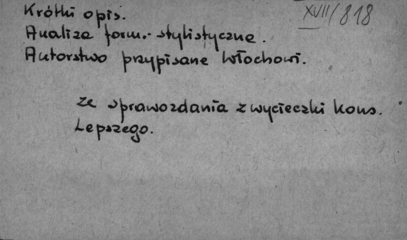 XVII/818
Krótki opis.
Analiza form.-stylistyczna.
Autorstwo przypisane Włochowi.
Ze sprawozdania z wycieczki kons.
Lepszego.